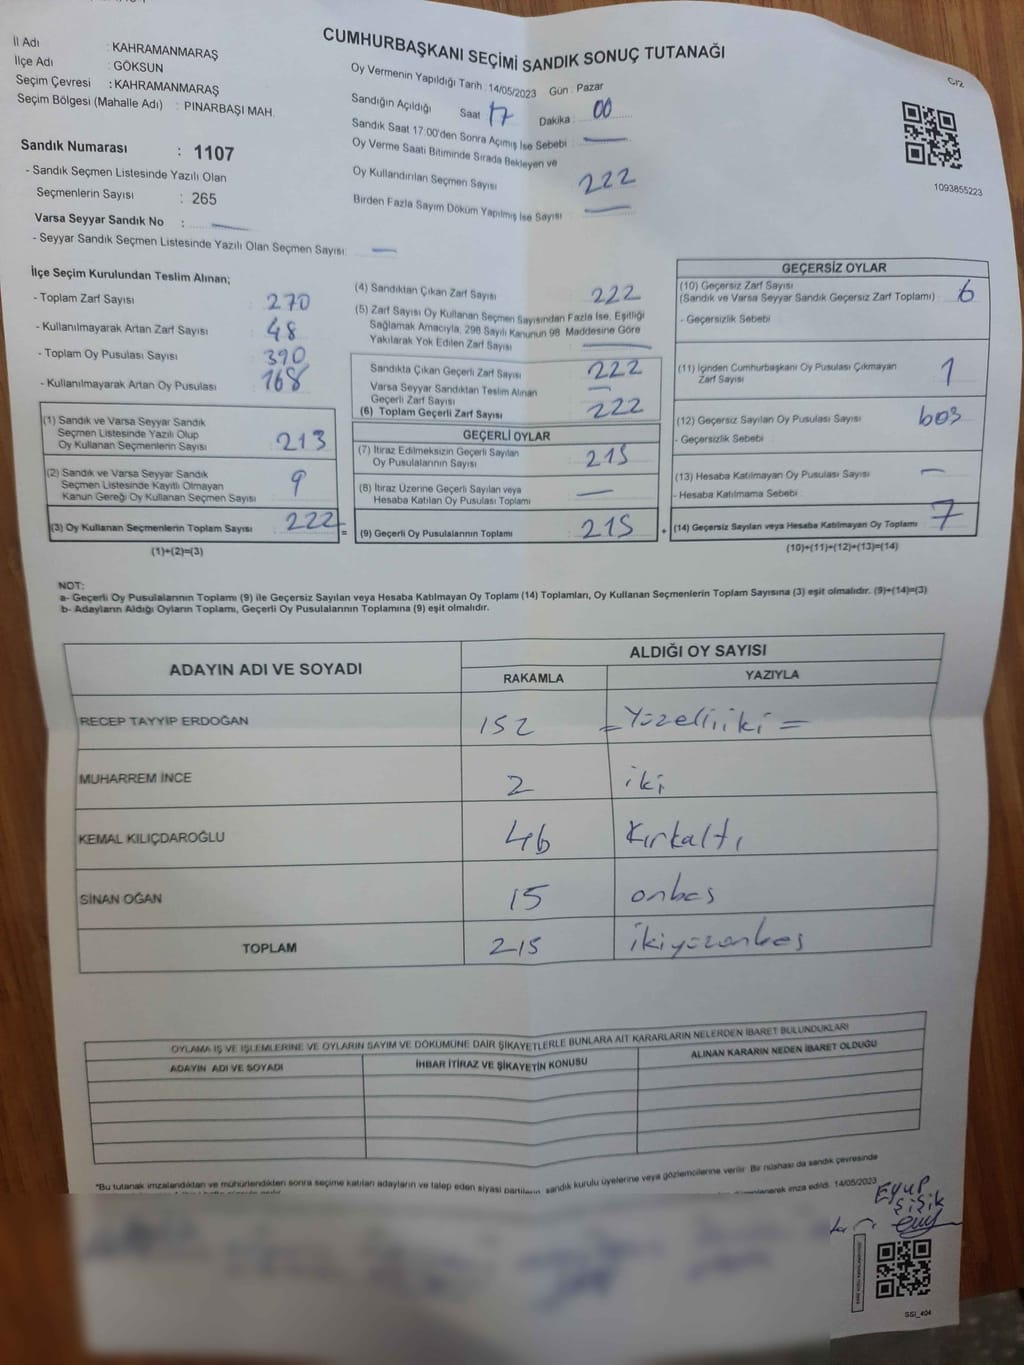 CUMHURBAŞKANI SEÇİMİ SANDIK SONUÇ TUTANAĞI
İl Adı : KAHRAMANMARAŞ
İlçe Adı : GÖKSUN
Seçim Çevresi : KAHRAMANMARAŞ
Seçim Bölgesi (Mahalle Adı) : PINARBAŞI MAH.
Sandık Numarası : 1107
- Sandık Seçmen Listesinde Yazılı Olan
Seçmenlerin Sayısı : 265
Varsa Seyyar Sandık No :
- Seyyar Sandık Seçmen Listesinde Yazılı Olan Seçmen Sayısı:
Oy Vermenin Yapıldığı Tarih : 14/05/2023 Gün : Pazar
Sandığın Açıldığı Saat 17 Dakika : 00
Sandık Saat 17:00'den Sonra Açımış İse Sebebi :
Oy Verme Saati Bitiminde Sırada Bekleyen ve
Oy Kullandırılan Seçmen Sayısı 222
Birden Fazla Sayım Döküm Yapılmış İse Sayısı
1093855223
İlçe Seçim Kurulundan Teslim Alınan;
- Toplam Zarf Sayısı 270
- Kullanılmayarak Artan Zarf Sayısı : 48
- Toplam Oy Pusulası Sayısı 390
- Kullanılmayarak Artan Oy Pusulası : 168
(1) Sandık ve Varsa Seyyar Sandık
Seçmen Listesinde Yazılı Olup
Oy Kullanan Seçmenlerin Sayısı : 213
(2) Sandık ve Varsa Seyyar Sandık
Seçmen Listesinde Kayıtlı Olmayan
Kanun Gereği Oy Kullanan Seçmen Sayısı : 9
(3) Oy Kullanan Seçmenlerin Toplam Sayısı : 222 =
(1)+(2)=(3)
(4) Sandıktan Çıkan Zarf Sayısı : 222
(5) Zarf Sayısı Oy Kullanan Seçmen Sayısından Fazla İse, Eşitliği
Sağlamak Amacıyla, 298 Sayılı Kanunun 98. Maddesine Göre
Yakılarak Yok Edilen Zarf Sayısı
Sandıkta Çıkan Geçerli Zarf Sayısı : 222
Varsa Seyyar Sandıktan Teslim Alınan
Geçerli Zarf Sayısı :
(6) Toplam Geçerli Zarf Sayısı : 222
GEÇERLİ OYLAR
(7) İtiraz Edilmeksizin Geçerli Sayılan
Oy Pusulalarının Sayısı : 215
(8) İtiraz Üzerine Geçerli Sayılan veya
Hesaba Katılan Oy Pusulası Toplamı
(9) Geçerli Oy Pusulalarının Toplamı : 215 +
GEÇERSİZ OYLAR
(10) Geçersiz Zarf Sayısı
(Sandık ve Varsa Seyyar Sandık Geçersiz Zarf Toplamı) : 6
- Geçersizlik Sebebi :
(11) İçinden Cumhurbaşkanı Oy Pusulası Çıkmayan
Zarf Sayısı 1
(12) Geçersiz Sayılan Oy Pusulası Sayısı
- Geçersizlik Sebebi
(13) Hesaba Katılmayan Oy Pusulası Sayısı
- Hesaba Katılmama Sebebi
(14) Geçersiz Sayılan veya Hesaba Katılmayan Oy Toplamı 7
(10)+(11)+(12)+(13)=(14)
NOT:
a- Geçerli Oy Pusulalarının Toplamı (9) ile Geçersiz Sayılan veya Hesaba Katılmayan Oy Toplamı (14) Toplamları, Oy Kullanan Seçmenlerin Toplam Sayısına (3) eşit olmalıdır. (9)+(14)=(3)
b- Adayların Aldığı Oyların Toplamı, Geçerli Oy Pusulalarının Toplamına (9) eşit olmalıdır.
ADAYIN ADI VE SOYADI ALDIĞI OY SAYISI
RAKAMLA YAZIYLA
RECEP TAYYİP ERDOĞAN 152 = Yüzelliiki =
MUHARREM İNCE 2 iki
KEMAL KILIÇDAROĞLU 46 Kırkaltı
SİNAN OĞAN 15 onbeş
TOPLAM 215 ikiyüzonbeş
OYLAMA İŞ VE İŞLEMLERİNE VE OYLARIN SAYIM VE DÖKÜMÜNE DAİR ŞİKAYETLERLE BUNLARA AİT KARARLARIN NELERDEN İBARET BULUNDUKLARI
ADAYIN ADI VE SOYADI İHBAR İTİRAZ VE ŞİKAYETİN KONUSU ALINAN KARARIN NEDEN İBARET OLDUĞU
*Bu tutanak imzalandıktan ve mühürlendikten sonra seçime katılan adayların ve talep eden siyasi partilerin, sandık kurulu üyelerine veya gözlemcilerine verilir. Bir nüshası da sandık çevresinde
imza edildi. 14/05/2023
Eyup
Şişik
SSI_404